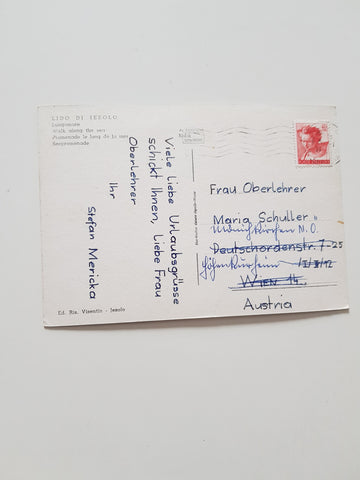 LIDO DI JESOLO
Lungomare
Walk along the sea
Promenade le long de la mer
Seepromenade
Viele liebe Urlaubsgrüsse
schickt Ihnen, liebe Frau
Oberlehrer
Ihr
Stefan Mericka
Frau Oberlehrer
Maria Schuller
N.Ö.
Deutschordenstr. 7-25
Wien 14.
Austria
Ed. Ris. Visentin - Jesolo